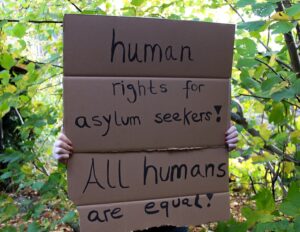 human
rights for
asylum seekers!
All humans
are equal!